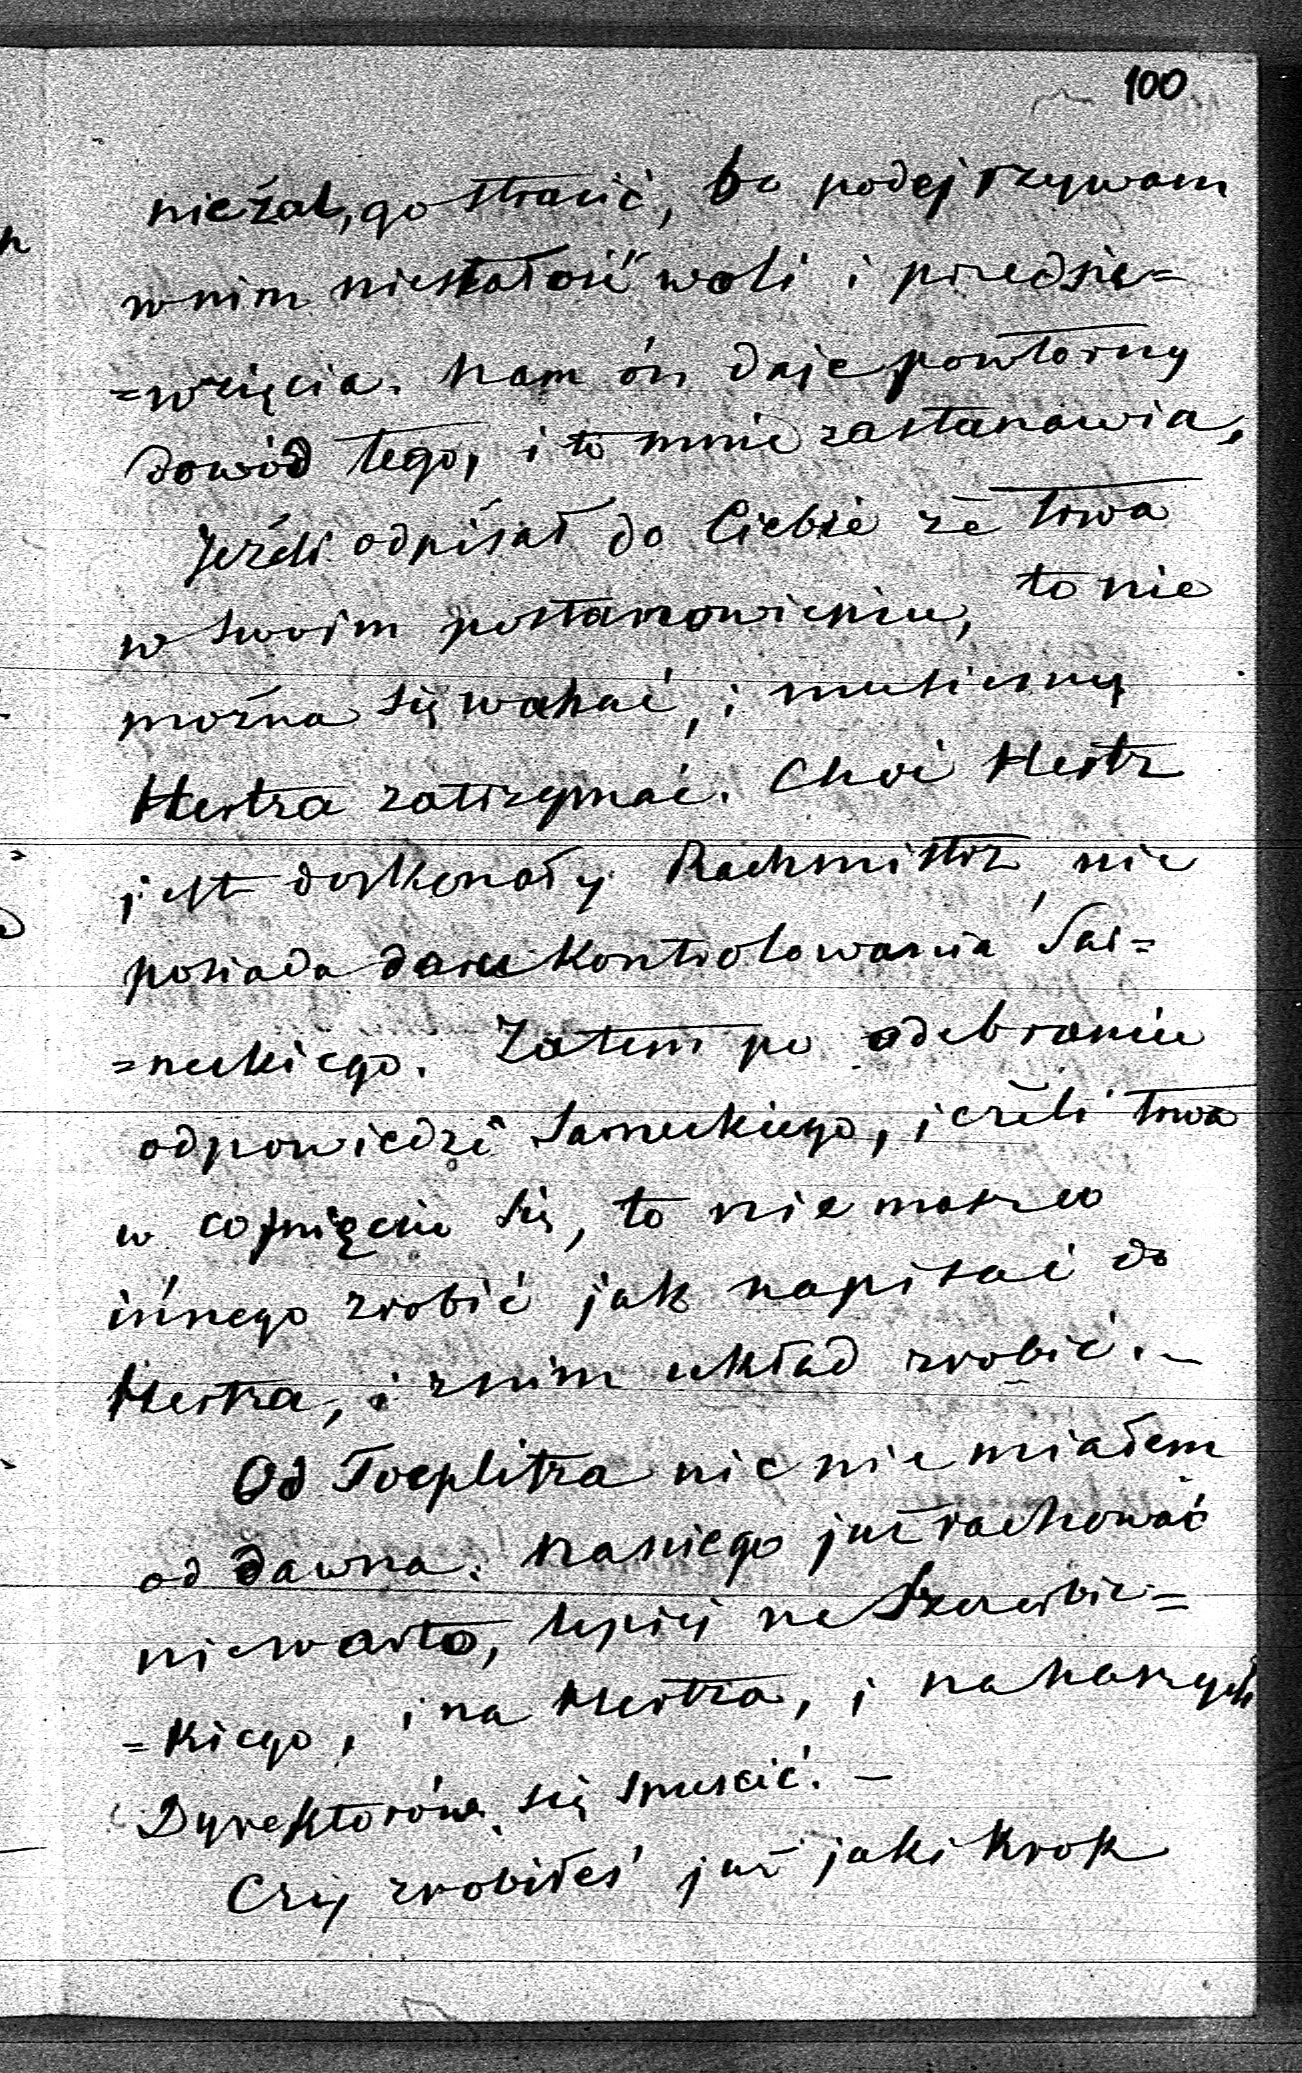 100
nieżal, go stracić, bo podejrzywam
w nim niestałość woli i przedsię=
=wzięcia. Nam ón daje powtorny
dowód tego, i to mnie zastanawia,
Jeźeli odpisał do Ciebie że trwa
w swoim postanowieniu, to nie
można się wahać, i musiemy
Hertza zatrzymać. Choć Hertz
jest doskonały Rachmistrz, nie
posiada daru kontrolowania Sar=
=neckiego. Zatem po odebraniu
odpowiedzi Sarneckiego, jeżeli trwa
w cofnięciu się, to nie masz co
innego zrobić jak napisać do
Hertza, i z nim układ zrobić. –
Od Toeplitza nic nie miałem
od dawna. Naniego już rachować
niewarto, lepiej na Szczerbic=
=kiego, i na Hertza, i na naszych
Dyrektorów się spuscić. –
Czy zrobiłeś już jaki krok